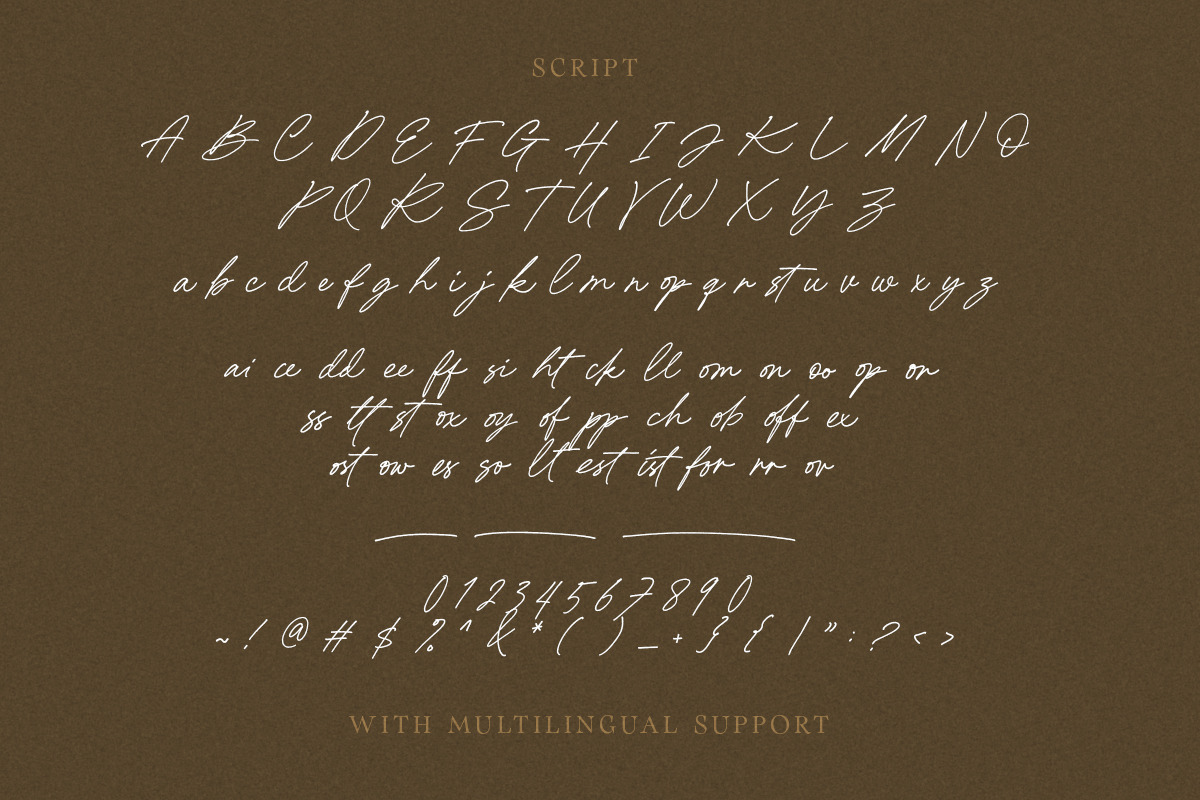 SCRIPT
A B C D E F G H I J K L M N O
P Q R S T U V W X Y Z
a b c d e f g h i j k l m n o p q r s t u v w x y z
ai ce dd ee ff si ht ck ll om on oo op or
ss tt st ox oy of pp ch ob off ex
ost ow es so lt est ist for rr ov
0 1 2 3 4 5 6 7 8 9 0
~ ! @ # $ % ^ & * ( ) _ + } { | ” : ? < >
WITH MULTILINGUAL SUPPORT